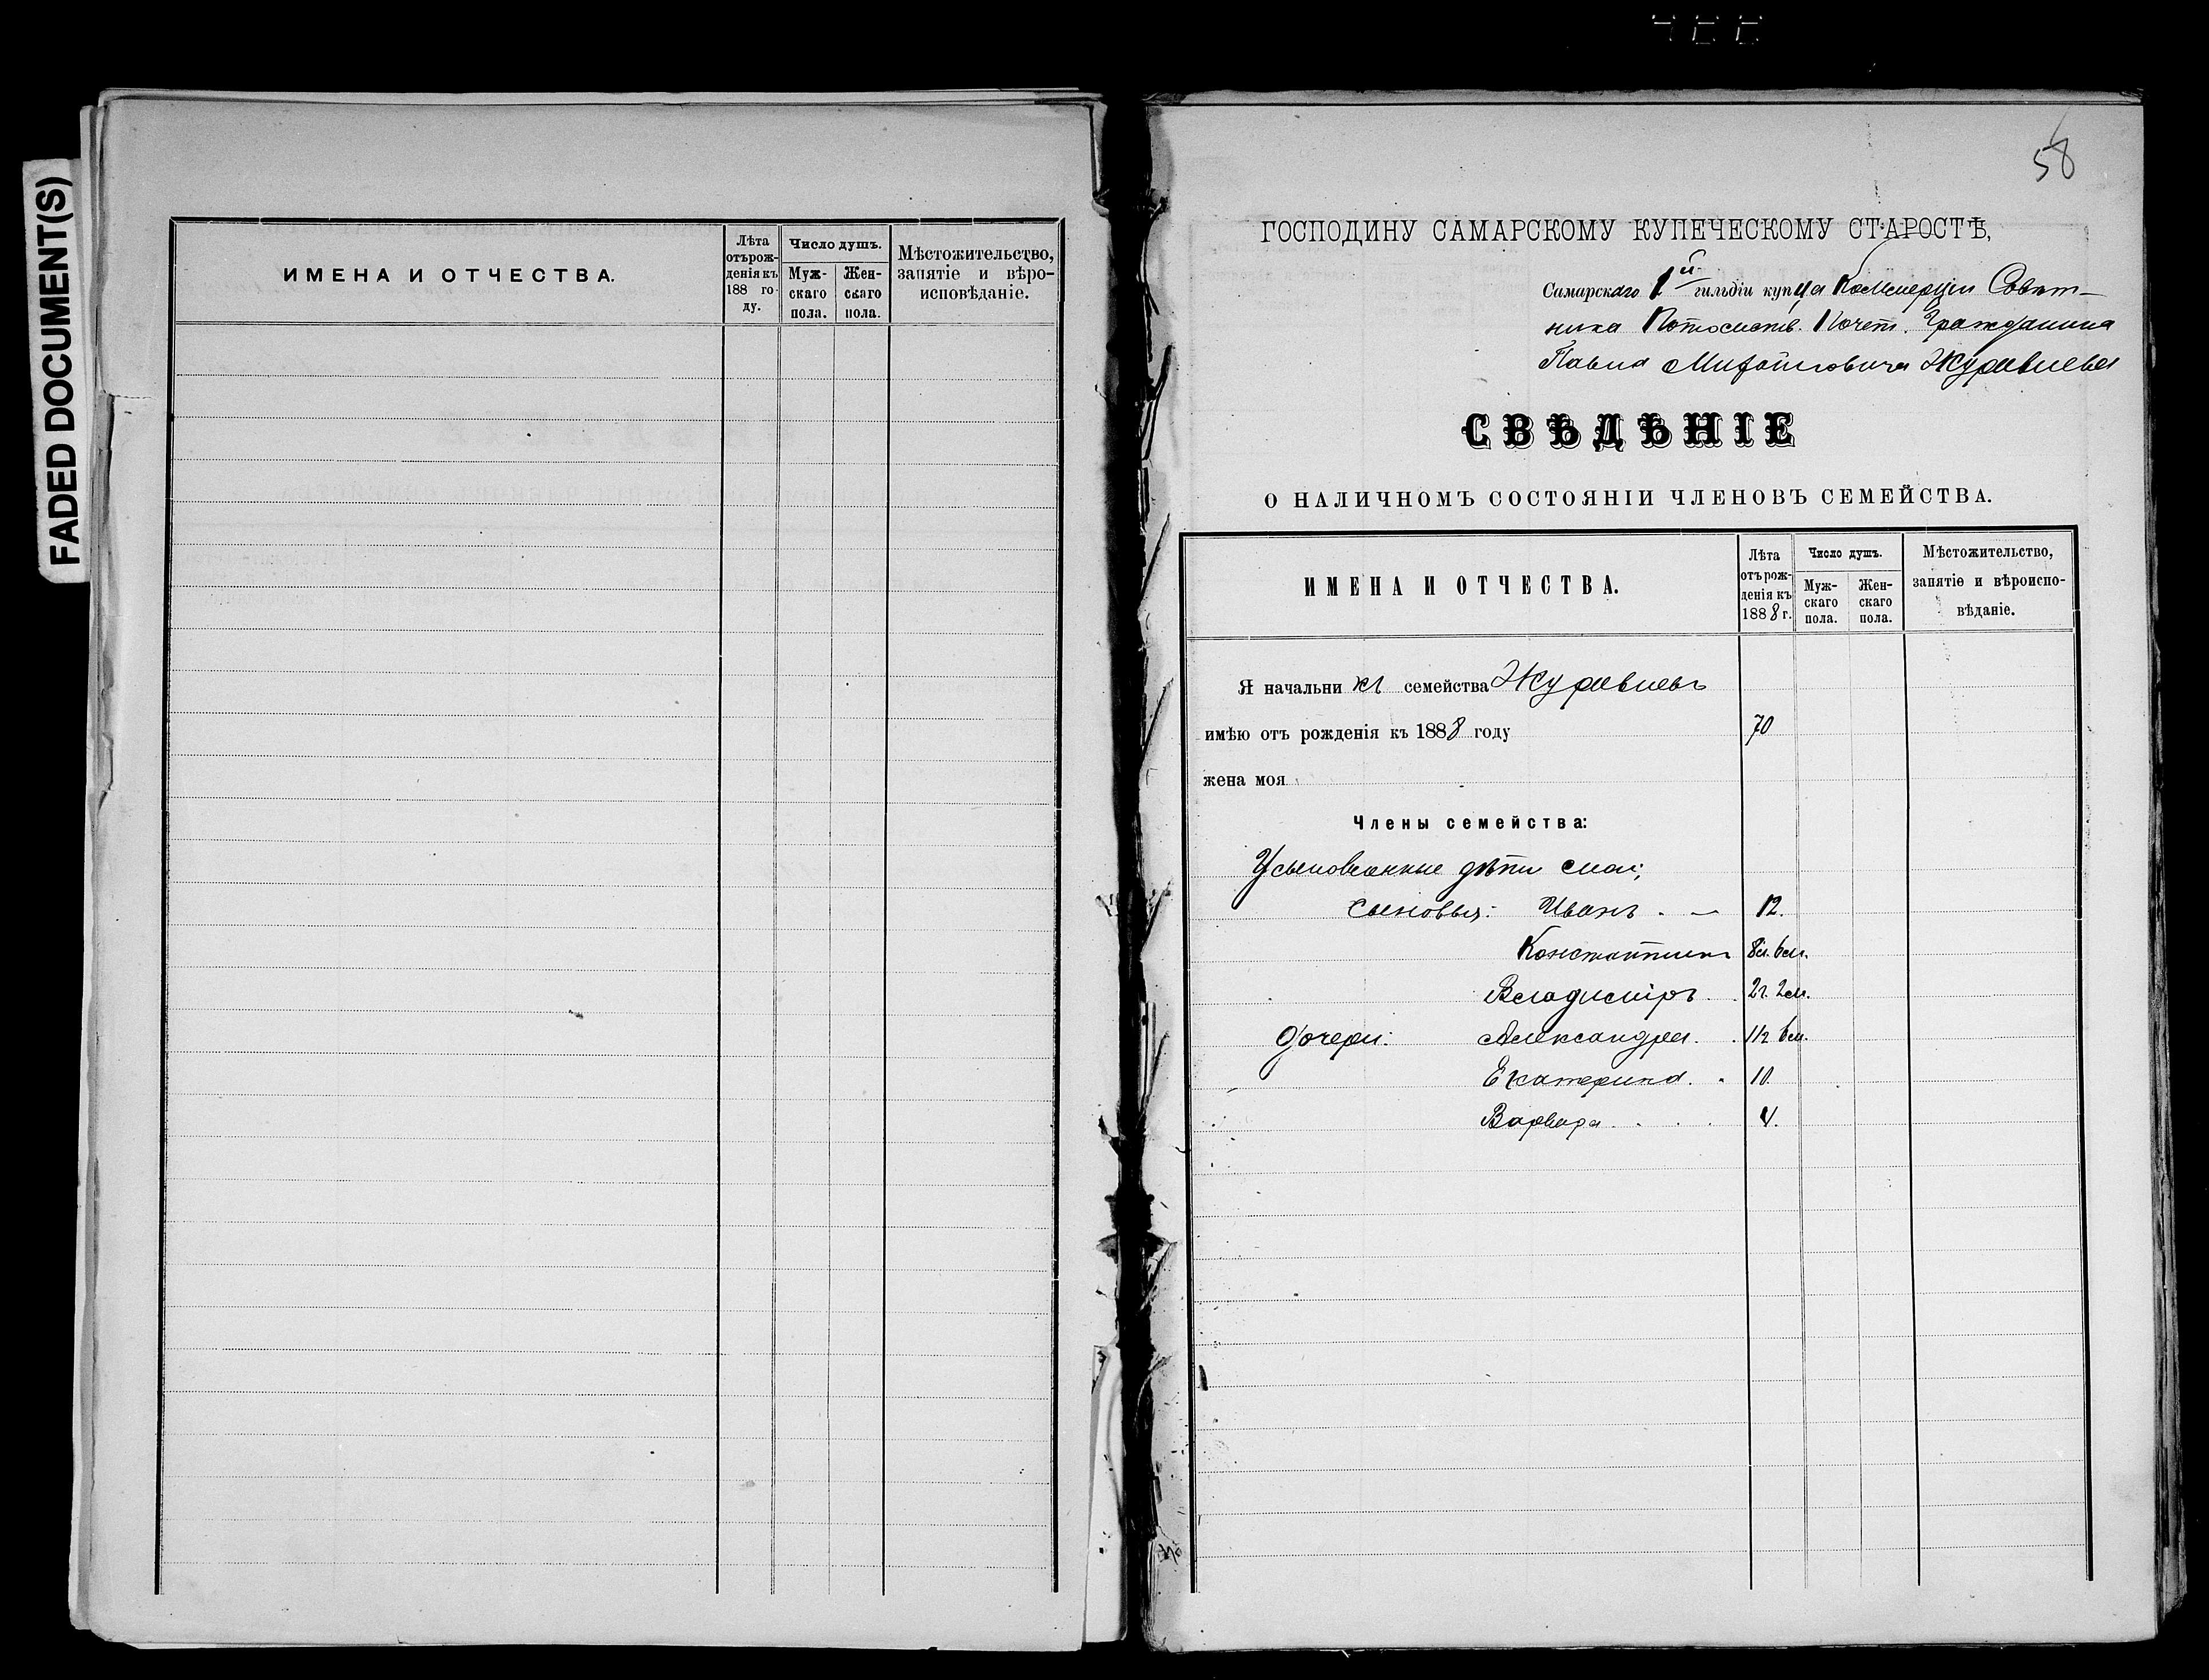 FADED DOCUMENT(S)
ИМЕНА И ОТЧЕСТВА.
Лѣта
отърож-
денія къ
188 го-
ду.
Число душъ.
Муж-
скаго
пола.
Жен-
скаго
пола.
Мѣстожительство,
занятіе и вѣро-
исповѣданіе.
58
ГОСПОДИНУ САМАРСКОМУ КУПЕЧЕСКОМУ СТАРОСТѢ,
Самарскаго 1й гильдіи купца Коммерціи Совѣт-
ника Потомств. Почет. Гражданина
Павла Михайловича Журавлева
СВѢДѢНІЕ
О НАЛИЧНОМЪ СОСТОЯНІИ ЧЛЕНОВЪ СЕМЕЙСТВА.
ИМЕНА И ОТЧЕСТВА.
Лѣта
отърож-
денія къ
1888 г.
Число душъ.
Муж-
скаго
пола.
Жен-
скаго
пола.
Мѣстожительство,
занятіе и вѣроиспо-
вѣданіе.
Я начальникъ семейства Журавлевъ
имѣю отъ рожденія къ 1888 году 70
жена моя
Члены семейства:
Усыновленные дѣти мои;
Сыновья: Иванъ . — 12.
Константинъ 8л. 6м.
Владиміръ . . 2г. 2м.
Дочери: Александра . . 11л 6м.
Екатерина . . 10.
Варвара . . . . 4.